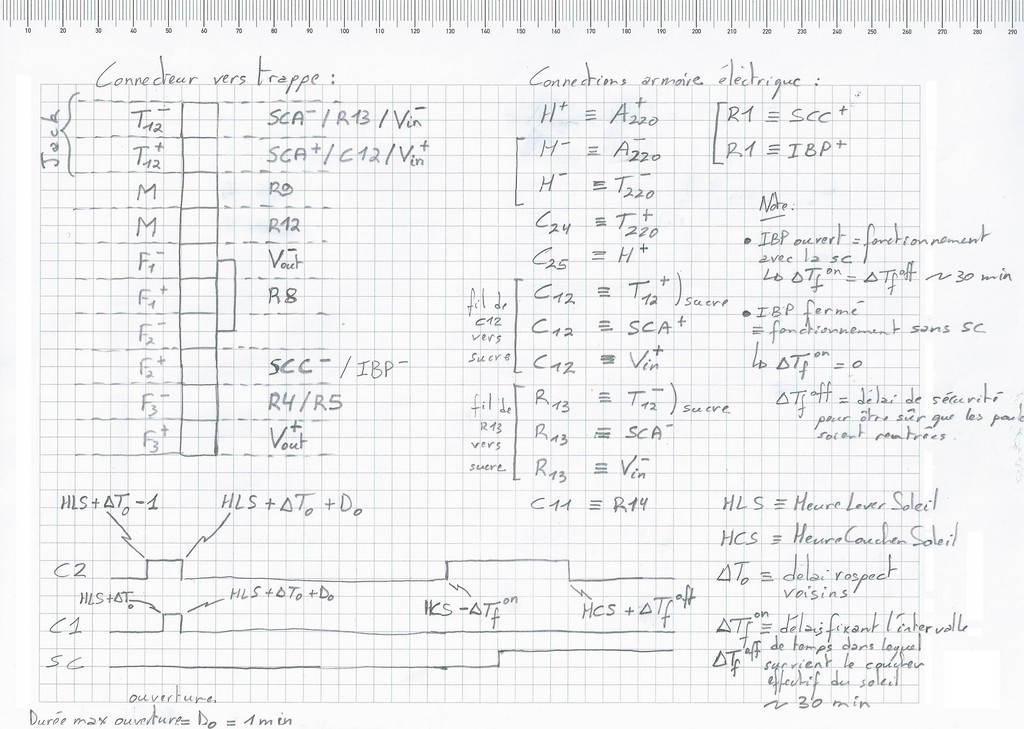 10 20 30 40 50 60 70 80 90 100 110 120 130 140 150 160 170 180 190 200 210 220 230 240 250 260 270 280 290
Connecteur vers trappe :
Jack
T12⁻ SCA⁻/R13/Vin⁻
T12⁺ SCA⁺/C12/Vin⁺
M R9
M R12
F1⁻ Vout⁻
F1⁺ R8
F2⁻
F2⁺ SCC⁻/IBP⁻
F3⁻ R4/R5
F3⁺ Vout⁺
Connections armoire électrique :
H⁺ ≡ A220⁺
H⁻ ≡ A220⁻
H⁻ ≡ T220⁻
C24 ≡ T220⁺
C25 ≡ H⁺
fil de
C12
vers
sucre
C12 ≡ T12⁺ ) sucre
C12 ≡ SCA⁺
C12 ≡ Vin⁺
fil de
R13
vers
sucre
R13 ≡ T12⁻ ) sucre
R13 ≡ SCA⁻
R13 ≡ Vin⁻
C11 ≡ R14
R1 ≡ SCC⁺
R1 ≡ IBP⁺
Note:
• IBP ouvert = fonctionnement
avec la SC
↳ ΔTf^on = ΔTf^off ~ 30 min
• IBP fermé
≡ fonctionnement sans SC
↳ ΔTf^on = 0
ΔTf^off = délai de sécurité
pour être sûr que les poul
soient rentrées.
HLS + ΔT0 - 1 HLS + ΔT0 + D0
C2
HLS+ΔT0 HLS + ΔT0 + D0
HCS - ΔTf^on HCS + ΔTf^off
C1
SC
ouverture
Durée max ouverture = D0 = 1 min
HLS ≡ Heure Lever Soleil
HCS ≡ Heure Coucher Soleil
ΔT0 ≡ délai respect
voisins
ΔTf^on ≡ délais fixant l'intervalle
ΔTf^off de temps dans lequel
survient le coucher
effectif du soleil
~ 30 min